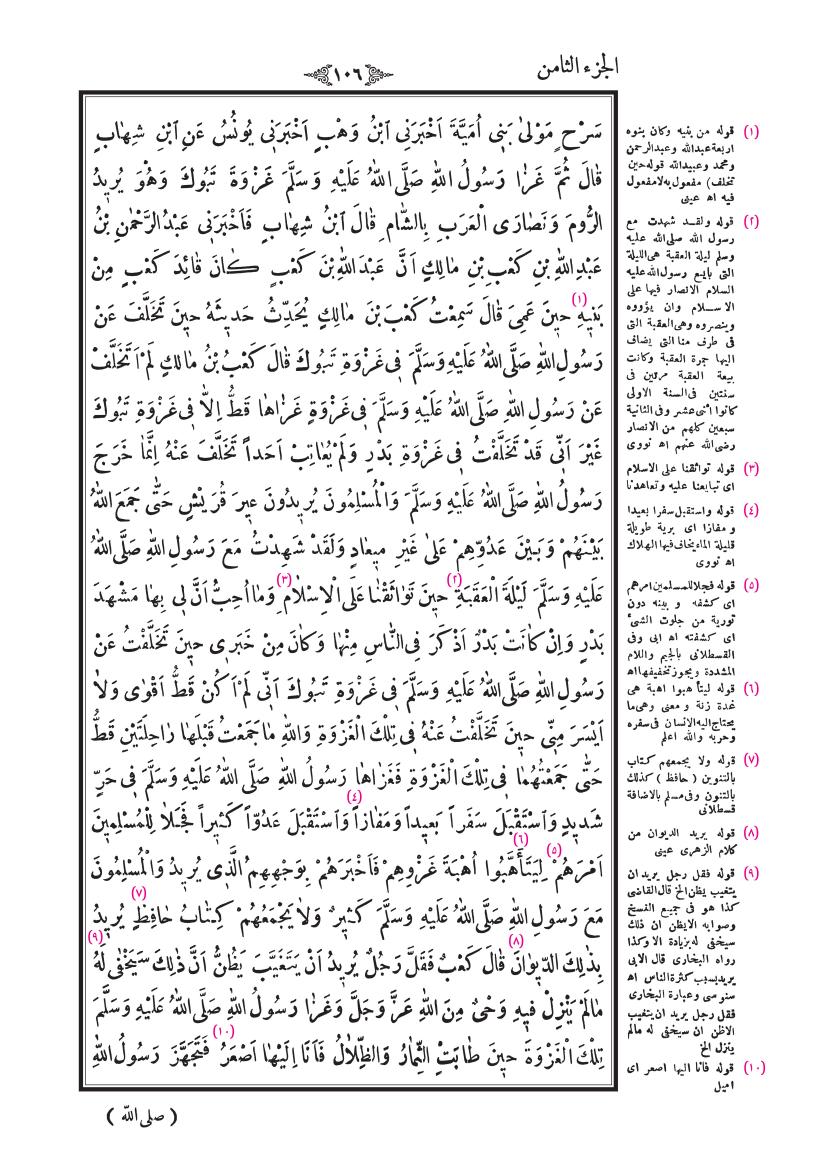 الجزء الثامن
١٠٦
سَرْحٍ مَوْلىٰ بَنِى اُمَيَّةَ اَخْبَرَنِى ابْنُ وَهْبٍ اَخْبَرَنِى يُونُسُ عَنِ ابْنِ شِهٰابٍ
قٰالَ ثُمَّ غَزٰا رَسُولُ اللهِ صَلَّى اللهُ عَلَيْهِ وَسَلَّمَ غَزْوَةَ تَبُوكَ وَهُوَ يُرِيدُ
الرُّومَ وَنَصٰارَى الْعَرَبِ بِالشّٰامِ قٰالَ ابْنُ شِهٰابٍ فَاَخْبَرَنِى عَبْدُ الرَّحْمٰنِ بْنُ
عَبْدِ اللهِ بْنِ كَعْبِ بْنِ مٰالِكٍ اَنَّ عَبْدَ اللهِ بْنَ كَعْبٍ كٰانَ قٰائِدَ كَعْبٍ مِنْ
بَنِيهِ (١) حِينَ عَمِىَ قٰالَ سَمِعْتُ كَعْبَ بْنَ مٰالِكٍ يُحَدِّثُ حَدِيثَهُ حِينَ تَخَلَّفَ عَنْ
رَسُولِ اللهِ صَلَّى اللهُ عَلَيْهِ وَسَلَّمَ فِى غَزْوَةِ تَبُوكَ قٰالَ كَعْبُ بْنُ مٰالِكٍ لَمْ اَتَخَلَّفْ
عَنْ رَسُولِ اللهِ صَلَّى اللهُ عَلَيْهِ وَسَلَّمَ فِى غَزْوَةٍ غَزٰاهٰا قَطُّ اِلاّٰ فِى غَزْوَةِ تَبُوكَ
غَيْرَ اَنِّى قَدْ تَخَلَّفْتُ فِى غَزْوَةِ بَدْرٍ وَلَمْ يُعٰاتِبْ اَحَداً تَخَلَّفَ عَنْهُ اِنَّمٰا خَرَجَ
رَسُولُ اللهِ صَلَّى اللهُ عَلَيْهِ وَسَلَّمَ وَالْمُسْلِمُونَ يُرِيدُونَ عِيرَ قُرَيْشٍ حَتّٰى جَمَعَ اللهُ
بَيْنَهُمْ وَبَيْنَ عَدُوِّهِمْ عَلىٰ غَيْرِ مِيعٰادٍ وَلَقَدْ شَهِدْتُ مَعَ رَسُولِ اللهِ صَلَّى اللهُ
عَلَيْهِ وَسَلَّمَ لَيْلَةَ الْعَقَبَةِ (٢) حِينَ تَوٰاثَقْنٰا عَلَى الْاِسْلٰامِ (٣) وَمٰا اُحِبُّ اَنَّ لِى بِهٰا مَشْهَدَ
بَدْرٍ وَاِنْ كٰانَتْ بَدْرٌ اَذْكَرَ فِى النّٰاسِ مِنْهٰا وَكٰانَ مِنْ خَبَرِى حِينَ تَخَلَّفْتُ عَنْ
رَسُولِ اللهِ صَلَّى اللهُ عَلَيْهِ وَسَلَّمَ فِى غَزْوَةِ تَبُوكَ اَنِّى لَمْ اَكُنْ قَطُّ اَقْوٰى وَلاٰ
اَيْسَرَ مِنِّى حِينَ تَخَلَّفْتُ عَنْهُ فِى تِلْكَ الْغَزْوَةِ وَاللهِ مٰا جَمَعْتُ قَبْلَهٰا رٰاحِلَتَيْنِ قَطُّ
حَتّٰى جَمَعْتُهُمٰا فِى تِلْكَ الْغَزْوَةِ فَغَزٰاهٰا رَسُولُ اللهِ صَلَّى اللهُ عَلَيْهِ وَسَلَّمَ فِى حَرٍّ
شَدِيدٍ وَاسْتَقْبَلَ سَفَراً بَعِيداً وَمَفٰازاً (٤) وَاسْتَقْبَلَ عَدُوّاً كَثِيراً فَجَلاٰ لِلْمُسْلِمِينَ
اَمْرَهُمْ (٥) لِيَتَأَهَّبُوا (٦) اُهْبَةَ غَزْوِهِمْ فَاَخْبَرَهُمْ بِوَجْهِهِمُ الَّذِى يُرِيدُ وَالْمُسْلِمُونَ
مَعَ رَسُولِ اللهِ صَلَّى اللهُ عَلَيْهِ وَسَلَّمَ كَثِيرٌ وَلاٰ يَجْمَعُهُمْ كِتٰابُ حٰافِظٍ (٧) يُرِيدُ
بِذٰلِكَ الدِّيوٰانَ (٨) قٰالَ كَعْبٌ فَقَلَّ رَجُلٌ يُرِيدُ اَنْ يَتَغَيَّبَ يَظُنُّ اَنَّ ذٰلِكَ سَيَخْفٰى لَهُ (٩)
مٰا لَمْ يَنْزِلْ فِيهِ وَحْىٌ مِنَ اللهِ عَزَّ وَجَلَّ وَغَزٰا رَسُولُ اللهِ صَلَّى اللهُ عَلَيْهِ وَسَلَّمَ
تِلْكَ الْغَزْوَةَ حِينَ طٰابَتِ الثِّمٰارُ وَالظِّلٰالُ فَاَنٰا اِلَيْهٰا اَصْعَرُ (١٠) فَتَجَهَّزَ رَسُولُ اللهِ
( صلى الله )
(١) قوله من بنيه وكان بنوه
اربعة عبدالله وعبدالرحمن
ومحمد وعبيدالله قوله حين
تخلف) مفعول به لا مفعول
فيه اه عينى
(٢) قوله ولقد شهدت مع
رسول الله صلى الله عليه
وسلم ليلة العقبة هى الليلة
التى بايع رسول الله عليه
السلام الانصار فيها على
الاسلام وان يؤووه
وينصروه وهى العقبة التى
فى طرف منا التى يضاف
اليها جمرة العقبة وكانت
بيعة العقبة مرتين فى
سنتين فى السنة الاولى
كانوا اثنى عشر وفى الثانية
سبعين كلهم من الانصار
رضى الله عنهم اه نووى
(٣) قوله تواثقنا على الاسلام
اى تبايعنا عليه وتعاهدنا
(٤) قوله واستقبل سفرا بعيدا
ومفازا اى برية طويلة
قليلة الماء يخاف فيها الهلاك
اه نووى
(٥) قوله فجلا للمسلمين امرهم
اى كشفه وبينه دون
تورية من جلوت الشئ
اى كشفته اه ابى وفى
القسطلانى بالجيم واللام
المشددة ويجوز تخفيفها اه
(٦) قوله ليتأهبوا اهبة هى
عدة زنة ومعنى وهى ما
يحتاج اليه الانسان فى سفره
وحربه والله اعلم
(٧) قوله ولا يجمعهم كتاب
بالتنوين (حافظ) كذلك
بالتنون وفى مسلم بالاضافة
قسطلانى
(٨) قوله يريد الديوان من
كلام الزهرى عينى
(٩) قوله فقل رجل يريد ان
يتغيب يظن الخ قال القاضى
كذا هو فى جميع النسخ
وصوابه الا يظن ان ذلك
سيخفى له بزيادة الا وكذا
رواه البخارى قال الابى
يريد بسبب كثرة الناس اه
سنوسى وعبارة البخارى
فقل رجل يريد ان يتغيب
الا ظن ان سيخفى له مالم
ينزل الخ
(١٠) قوله فانا اليها اصعر اى
اميل